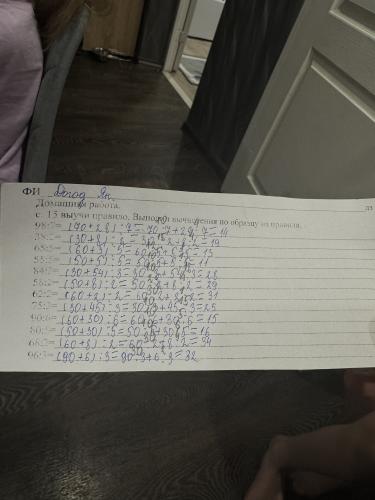 ФИ
Домашняя работа.
с. 15 выучи правило. Выполни вычисления по образцу из правила.
98:7= (70+28):7=70:7+28:7=14
38:2= (30+8):2=30:2+8:2=19
65:5= =13
55:5= (50+5):5= =11
84:3= (30+54):3= =28
58:2= (50+8):2=50:2+8:2=29
62:2= (60+2):2=60:2+2:2=31
75:3= (30+45):3=30:3+45:3=25
90:6= (60+30):6=60:6+30:6=15
80:5= (50+30):5=50:5+30:5=16
68:2= (60+8):2=60:2+8:2=34
96:3= (90+6):3=90:3+6:3=32